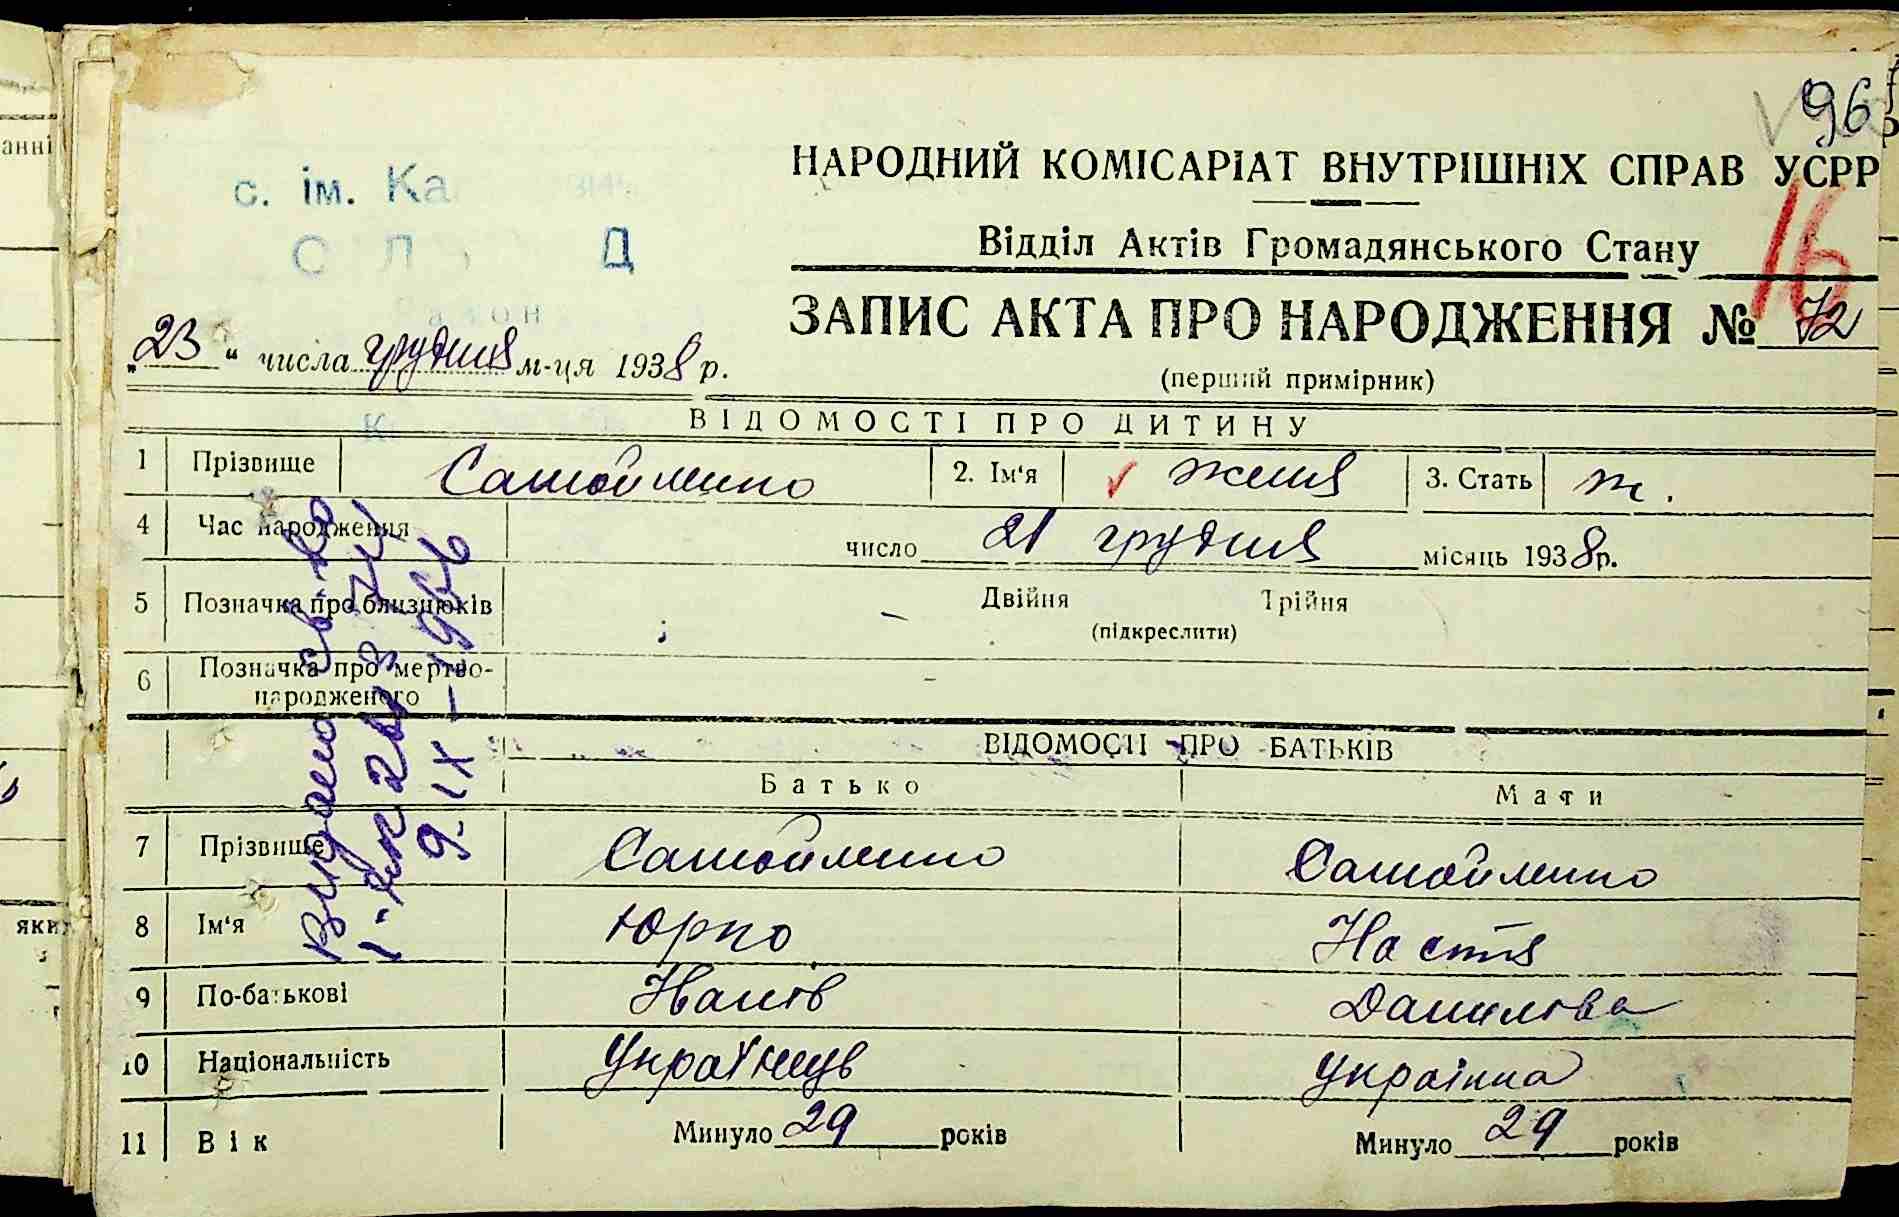 96
НАРОДНИЙ КОМІСАРІАТ ВНУТРІШНІХ СПРАВ УСРР
с. ім. Ка
Відділ Актів Громадянського Стану
16
ЗАПИС АКТА ПРО НАРОДЖЕННЯ № 72
(перший примірник)
„23“ числа грудня м-ця 1938 р.
ВІДОМОСТІ ПРО ДИТИНУ
1 Прізвище Самойленко 2. Ім'я Женя 3. Стать ж.
4 Час народження число 21 грудня місяць 1938р.
5 Позначка про близнюків Двійня Трійня
(підкреслити)
6 Позначка про мертво-
народженого
ВІДОМОСТІ ПРО БАТЬКІВ
Батько Мати
7 Прізвище Самойленко Самойленко
8 Ім'я Юрко Настя
9 По-батькові Іванів Данилова
10 Національність Українець Українка
11 Вік Минуло 29 років Минуло 29 років
Видано св-во
9-IX-1956